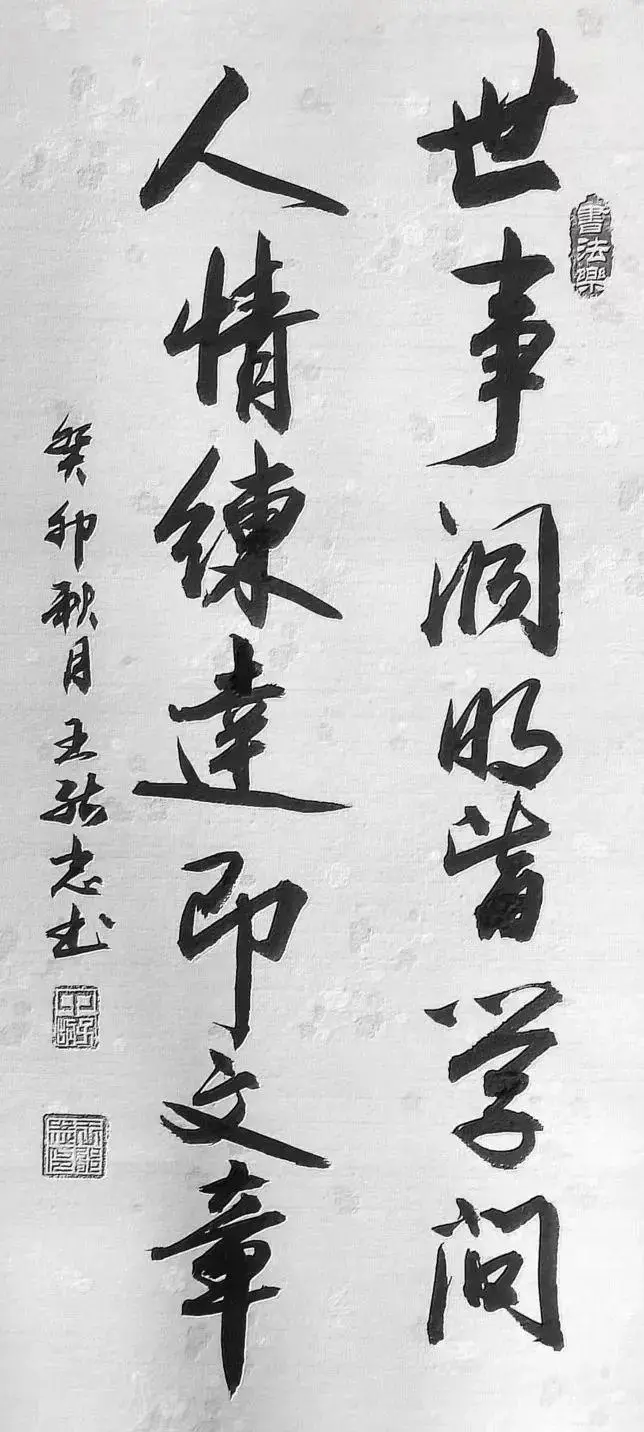 世事洞明皆学问
書法樂
人情練達即文章
癸卯秋月王
志书